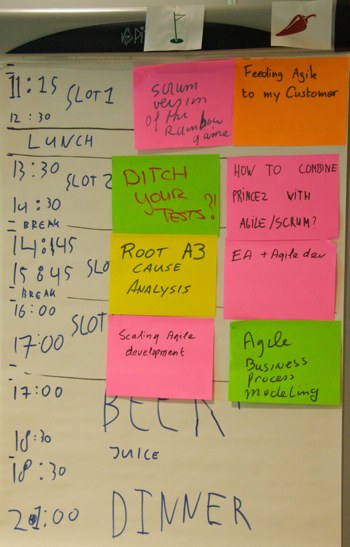 11:15 SLOT1
12:30
Scrum
version
of the
Rainbow
game
Feeding Agile
to my Customer
LUNCH
13:30 SLOT 2
14:30
DITCH
YOUR
TESTS?!
HOW TO COMBINE
PRINCE2 WITH
AGILE/SCRUM?
BREAK
14:45
15:45 SLO
ROOT A3
CAUSE
ANALYSIS
EA + Agile dev
BREAK
16:00
17:00 SLOT
Scaling Agile
development
Agile
Business
Process
Modeling
17:00
18:30
JUICE
18:30
20:00 DINNER